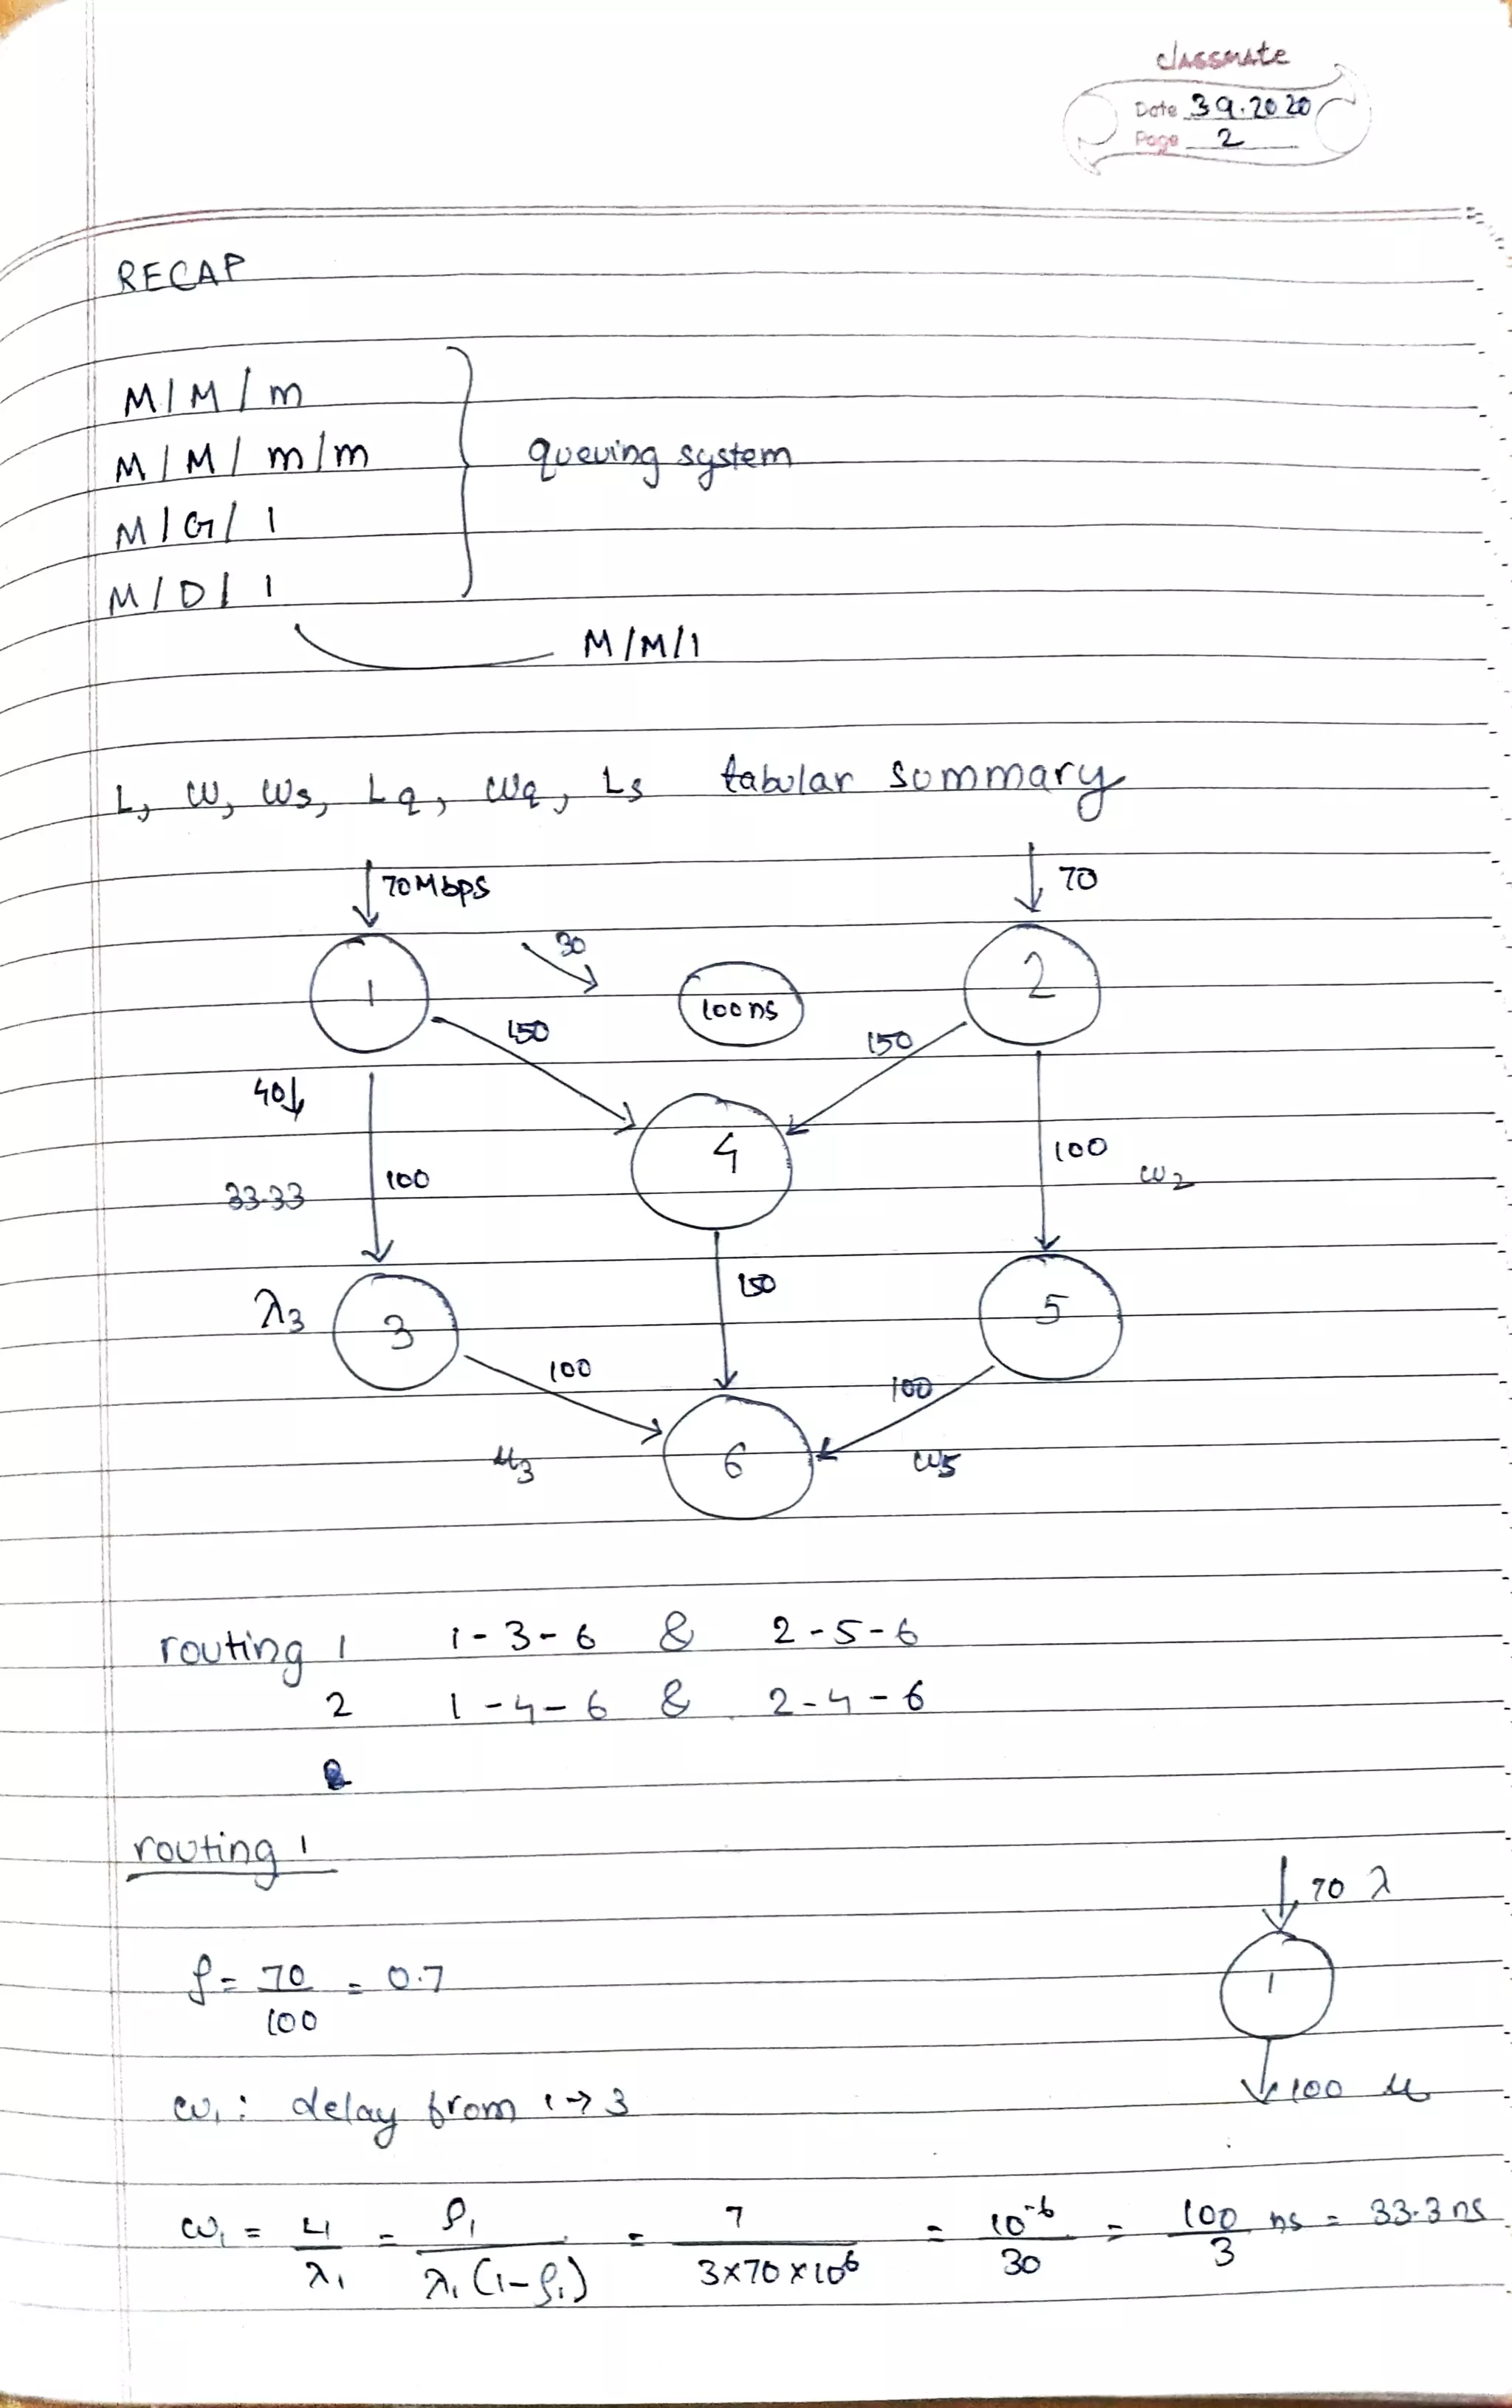 classmate
Date 3 9.2020
Page 2
RECAP
M/M/m
M/M/m/m
M/G/1
M/D/1
queuing system
M/M/1
L, W, Ws, Lq, Wq, Ls tabular summary
70Mbps
70
30
1
100ns
2
150
150
40↓
4
100
100
W2
33.33
150
λ3
3
5
100
100
μ3
6
W5
routing 1 1-3-6 & 2-5-6
2 1-4-6 & 2-4-6
routing 1
70 λ
ρ = 70/100 = 0.7
1
100 μ
W1: delay from 1→3
W1 = L1/λ1 = ρ1/λ1(1-ρ1) = 7/3×70×10^6 = 10^-6/30 = 100/3 ns = 33.3ns